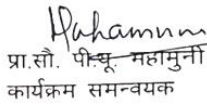 Mahamuni
प्रा.सौ. पी.यू. महामुनी
कार्यक्रम समन्वयक